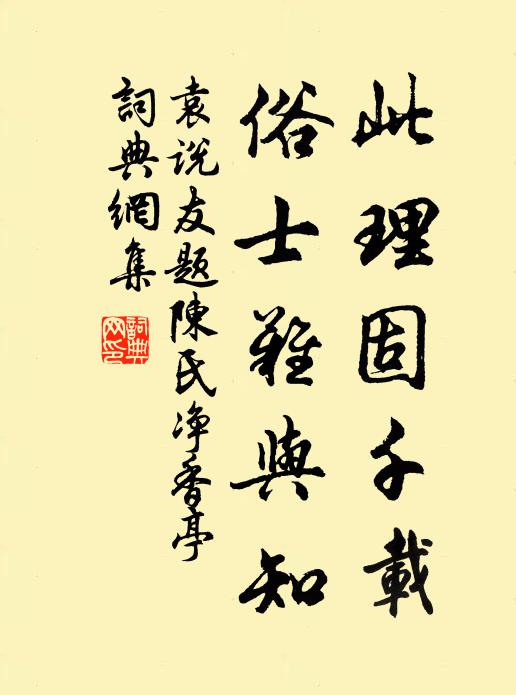 此理固千載
俗士難與知
袁说友题陳氏净香亭
詞典網集
詞典網印